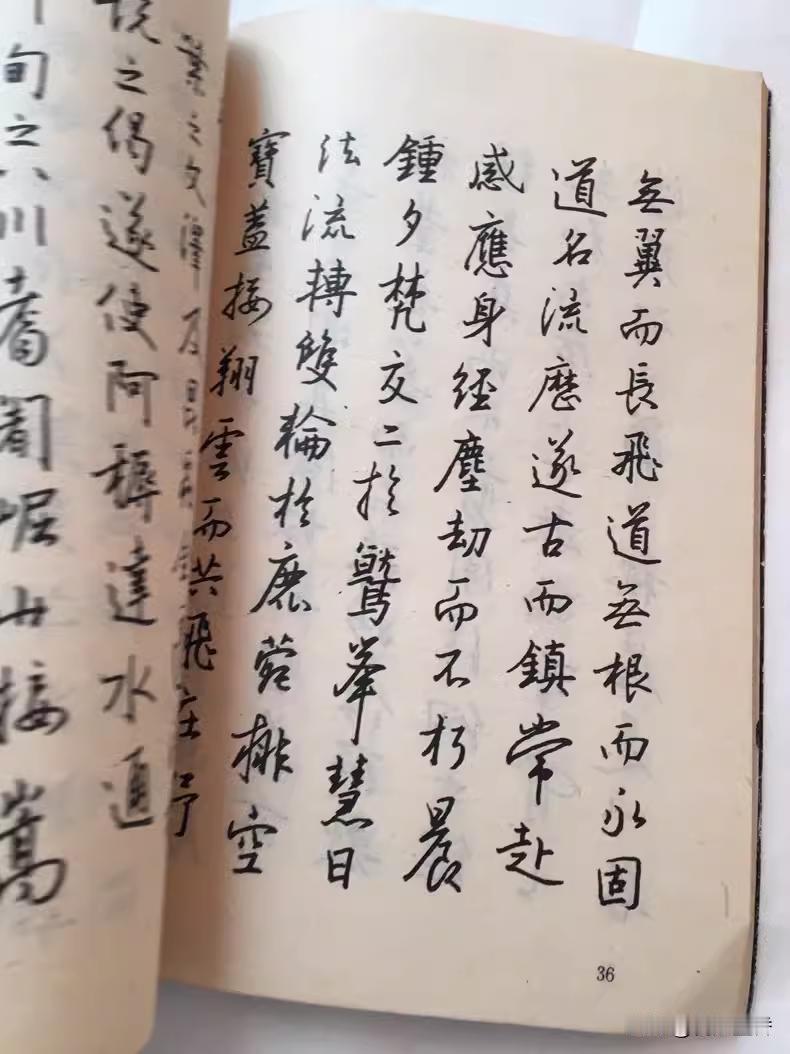 無翼而長飛道無根而永固
道名流歷遂古而鎮常赴
感應身經塵劫而不朽晨
鍾夕梵交二扵鷲峯慧日
法流轉雙輪扵鹿菀排空
寶蓋接翔雲而共飛庄野
葉之文澤及昆
說之偈遂使阿耨達水通
旬之八川耆闍崛山接嵩
36